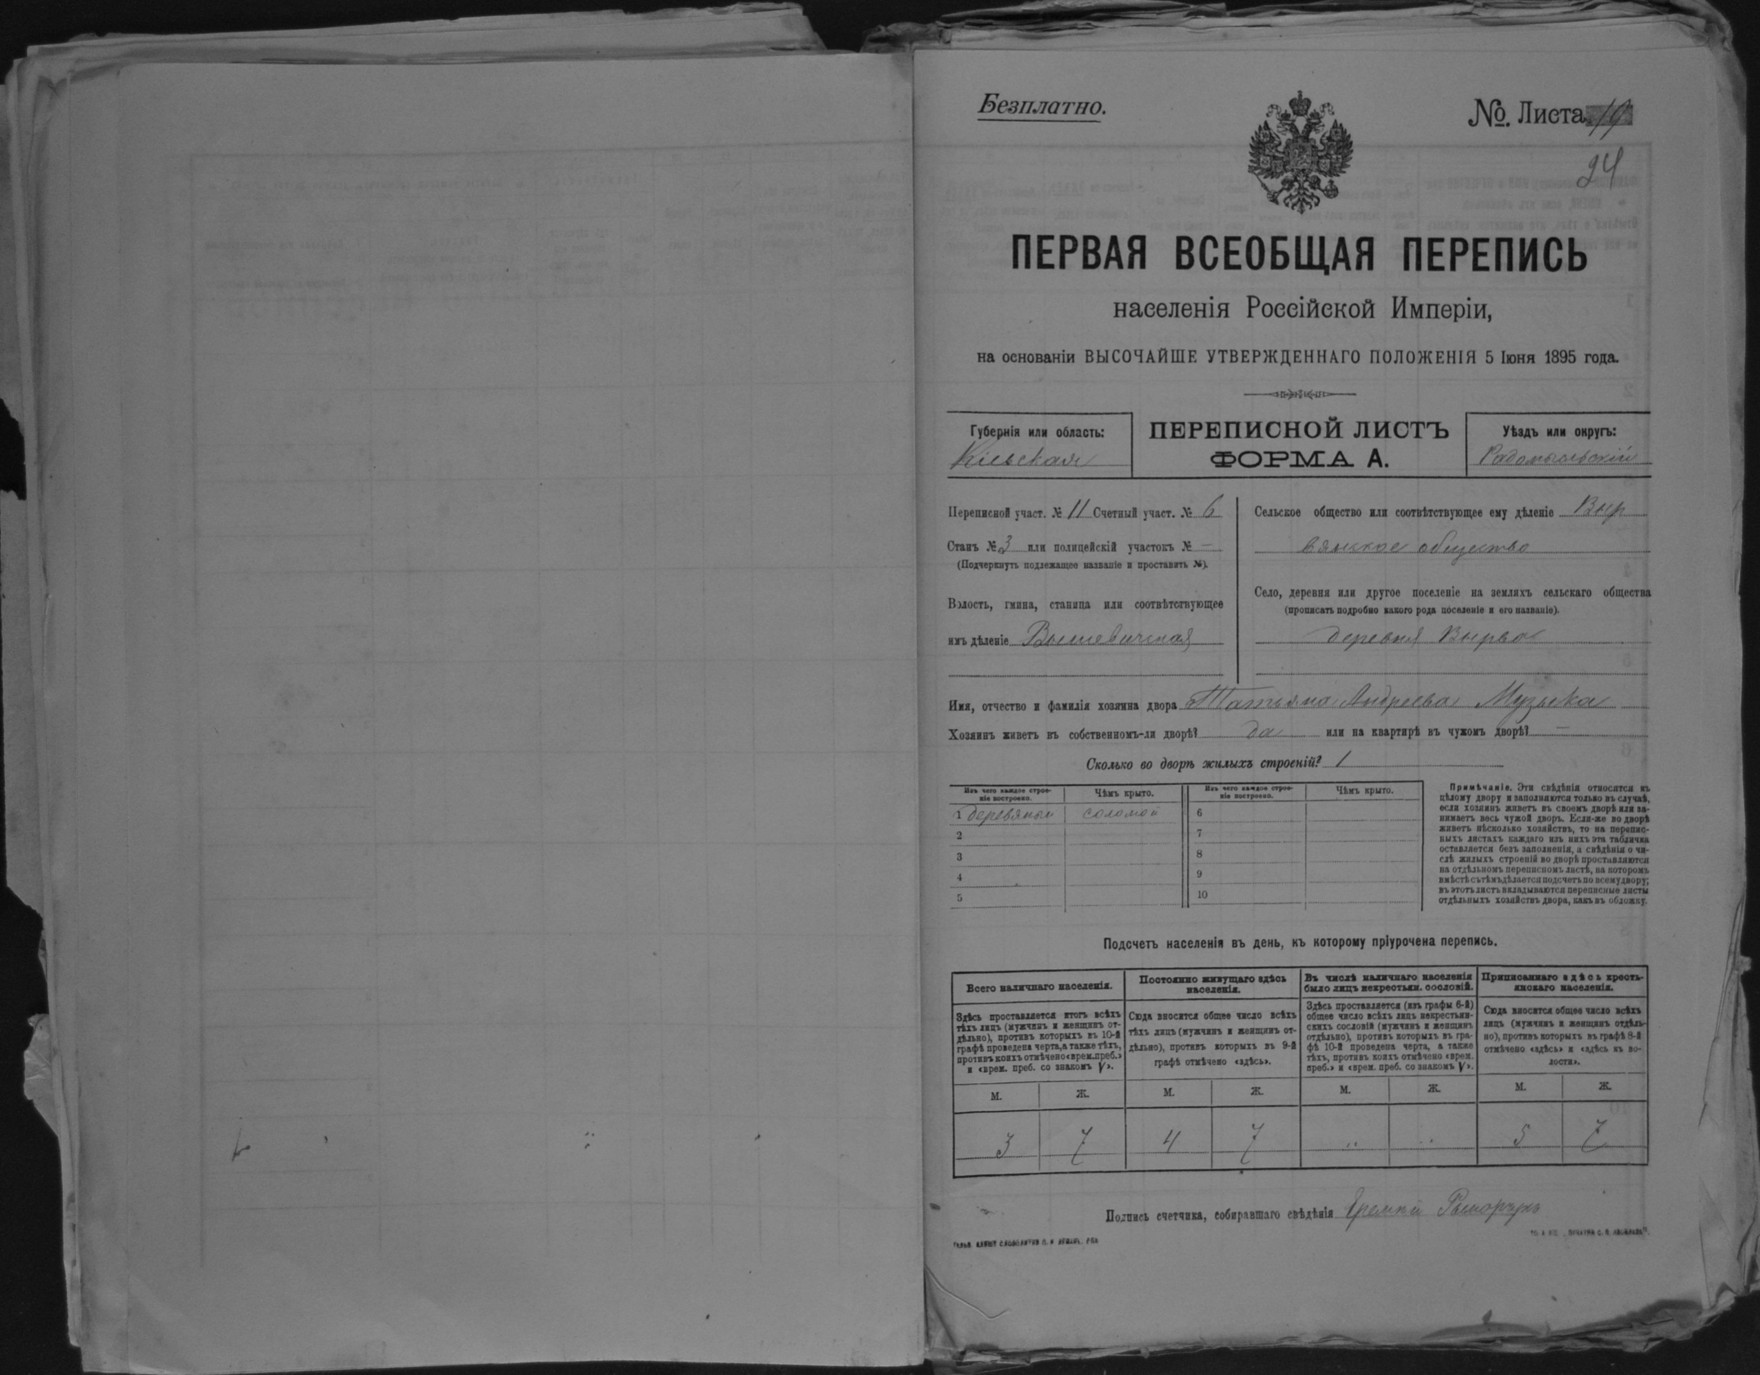 Безплатно.
№. Листа 19
24
ПЕРВАЯ ВСЕОБЩАЯ ПЕРЕПИСЬ
населенія Россійской Имперіи,
на основаніи ВЫСОЧАЙШЕ УТВЕРЖДЕННАГО ПОЛОЖЕНІЯ 5 Іюня 1895 года.
Губернія или область:
Кіевская
ПЕРЕПИСНОЙ ЛИСТЪ
ФОРМА А.
Уѣздъ или округъ:
Радомысльскій
Переписной участ. № 11 Счетный участ. № 6
Станъ № 3 или полицейскій участокъ № —
(Подчеркнуть подлежащее названіе и проставить №).
Волость, гмина, станица или соотвѣтствующее
имъ дѣленіе Вышевичская
Сельское общество или соотвѣтствующее ему дѣленіе Выр
вянское общество
Село, деревня или другое поселеніе на земляхъ сельскаго общества
(прописать подробно какого рода поселеніе и его названіе).
деревня Вырва
Имя, отчество и фамилія хозяина двора Татьяна Андреева Музыка —
Хозяинъ живетъ въ собственномъ-ли дворѣ? да или на квартирѣ въ чужомъ дворѣ? —
Сколько во дворѣ жилыхъ строеній? 1
Изъ чего каждое строе-
ніе построено.
Чѣмъ крыто.
Изъ чего каждое строе-
ніе построено.
Чѣмъ крыто.
1 деревяное соломой 6
2 7
3 8
4 9
5 10
Примѣчаніе. Эти свѣдѣнія относятся къ
цѣлому двору и заполняются только въ случаѣ,
если хозяинъ живетъ въ своемъ дворѣ или за-
нимаетъ весь чужой дворъ. Если-же во дворѣ
живетъ нѣсколько хозяйствъ, то на перепис-
ныхъ листахъ каждаго изъ нихъ эта табличка
оставляется безъ заполненія, а свѣдѣнія о чи-
слѣ жилыхъ строеній во дворѣ проставляются
на отдѣльномъ переписномъ листѣ, на которомъ
вмѣстѣ съ тѣмъ дѣлается подсчетъ по всему двору;
въ этотъ листъ вкладываются переписные листы
отдѣльныхъ хозяйствъ двора, какъ въ обложку.
Подсчетъ населенія въ день, къ которому пріурочена перепись.
Всего наличнаго населенія.
Здѣсь проставляется итогъ всѣхъ
тѣхъ лицъ (мужчинъ и женщинъ от-
дѣльно), противъ которыхъ въ 10-й
графѣ проведена черта, а также тѣхъ,
противъ коихъ отмѣчено «врем. преб.»
и «врем. преб. со знакомъ V».
Постоянно живущаго здѣсь
населенія.
Сюда вносится общее число всѣхъ
тѣхъ лицъ (мужчинъ и женщинъ от-
дѣльно), противъ которыхъ въ 9-й
графѣ отмѣчено «здѣсь».
Въ числѣ наличнаго населенія
было лицъ некрестьян. сословій.
Здѣсь проставляется (изъ графы 6-й)
общее число всѣхъ лицъ некрестьян-
скихъ сословій (мужчинъ и женщинъ
отдѣльно), противъ которыхъ въ гра-
фѣ 10-й проведена черта, а также
тѣхъ, противъ коихъ отмѣчено «врем.
преб.» и «врем. преб. со знакомъ V».
Приписаннаго здѣсь кресть-
янскаго населенія.
Сюда вносится общее число всѣхъ
лицъ (мужчинъ и женщинъ отдѣль-
но), противъ которыхъ въ графѣ 8-й
отмѣчено «здѣсь» и «здѣсь въ во-
лости».
М. Ж. М. Ж. М. Ж. М. Ж.
3 7 4 7 „ „ 5 7
Подпись счетчика, собиравшаго свѣдѣнія